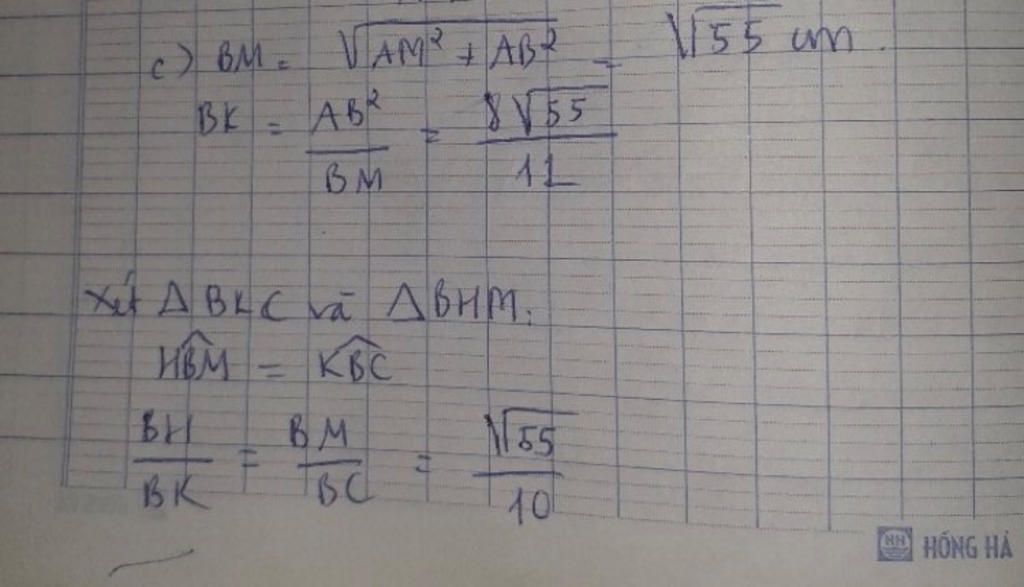 c) BM = √AM² + AB² = √55 cm.
BK = AB²/BM = 8√55/11
Xét Δ BKC và Δ BHM:
HBM̂ = KBĈ
BH/BK = BM/BC = √55/10
HH HỒNG HÀ